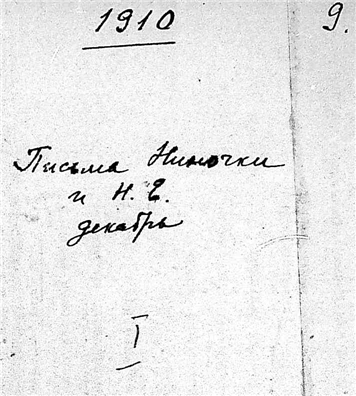 1910
9.
Письма Ниночки
и Н. Е.
декабрь
I